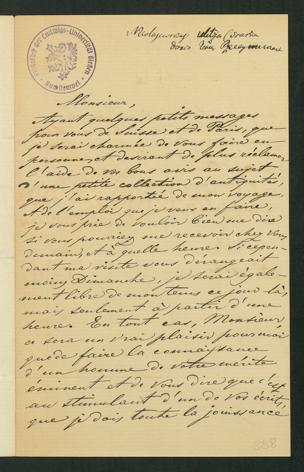 Monsieur,
Ayant quelques petits messages
pour vous de Suisse et de Paris, que
je serai charmée de vous faire en
personne, et desirant de plus réclamer
l'aide de vos bons avis au sujet
d'une petite collection d'antiquités,
que j'ai rapportée de mon voyage,
et de l'emploi que je veux en faire,
je vous prie de vouloir bien me dire
si vous pourriez me recevoir chez vous
demain, et à quelle heure. Si cepen-
dant ma visite vous dérangeait
moins Dimanche, je serai égale-
ment libre de mon tems ce jour là,
mais seulement à partir d'une
heure. En tout cas, Monsieur
ce sera un vrai plaisir pour moi
que de faire la connaissance
d'un homme de votre mérite
éminent et de vous dire que c'est
au stimulant d'un de vos écrits,
que je dois toute la jouissance
388